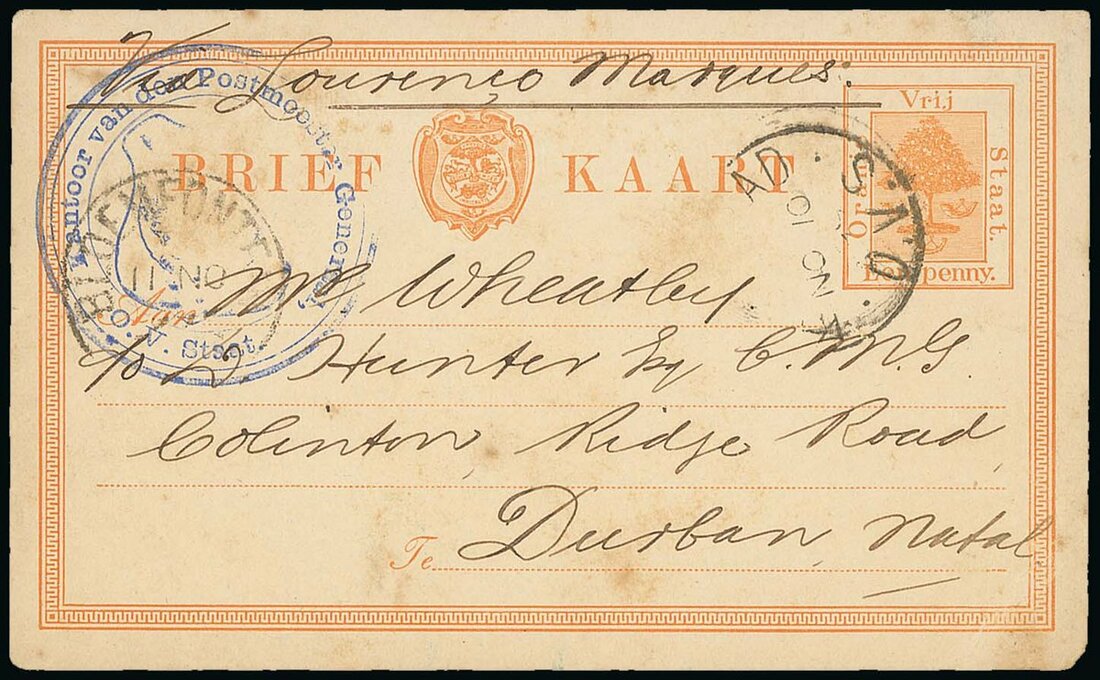 Via Lourenço Marques.
Kantoor van den Postmeester Generaal
O. V. Staat.
BRIEF KAART
Vrij
Staat.
penny.
BLOEMFONTEIN
11 NO
O.V.S.
NO 10
Aan
Mr Wheatley
c/o D. Hunter Esq C.M.G.
Colinton, Ridge Road,
Te Durban, Natal